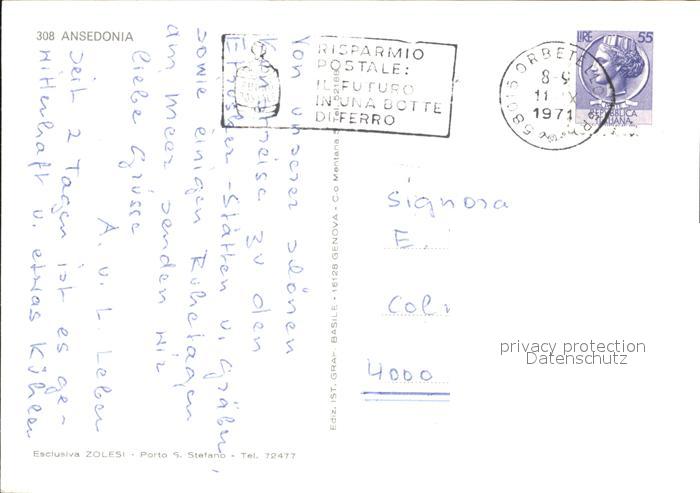 308 ANSEDONIA
Von unserer schönen
Kunstreise zu den
Etrusker-Stätten u. Gräbern,
sowie einigen Ruhetagen
am Meer senden wir
liebe Grüsse
A. u. L. Leber
Seit 2 Tagen ist es ge-
witterhaft u. etwas kühler
RISPARMIO
POSTALE:
IL FUTURO
IN UNA BOTTE
DI FERRO
58015 ORBETE
8-9
11 X
1971
LIRE 55
REPUBBLICA
ITALIANA
Signora
E.
Col
4000
privacy protection
Datenschutz
Ediz. IST. GRAF. BASILE - 16128 GENOVA - C.o Mentana
Esclusiva ZOLESI - Porto S. Stefano - Tel. 72477